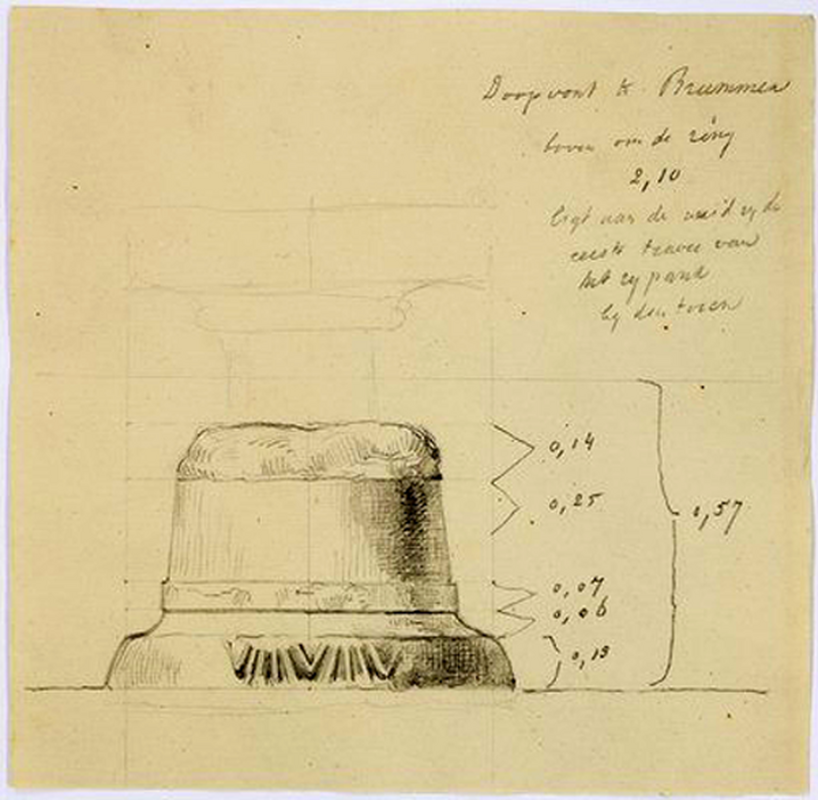 Doopvont te Brummen
boven om de ring
2,10
ligt aan de zuid zyde
eerste travee van
het zypand
by den toren
0,14
0,25
0,57
0,07
0,06
0,13